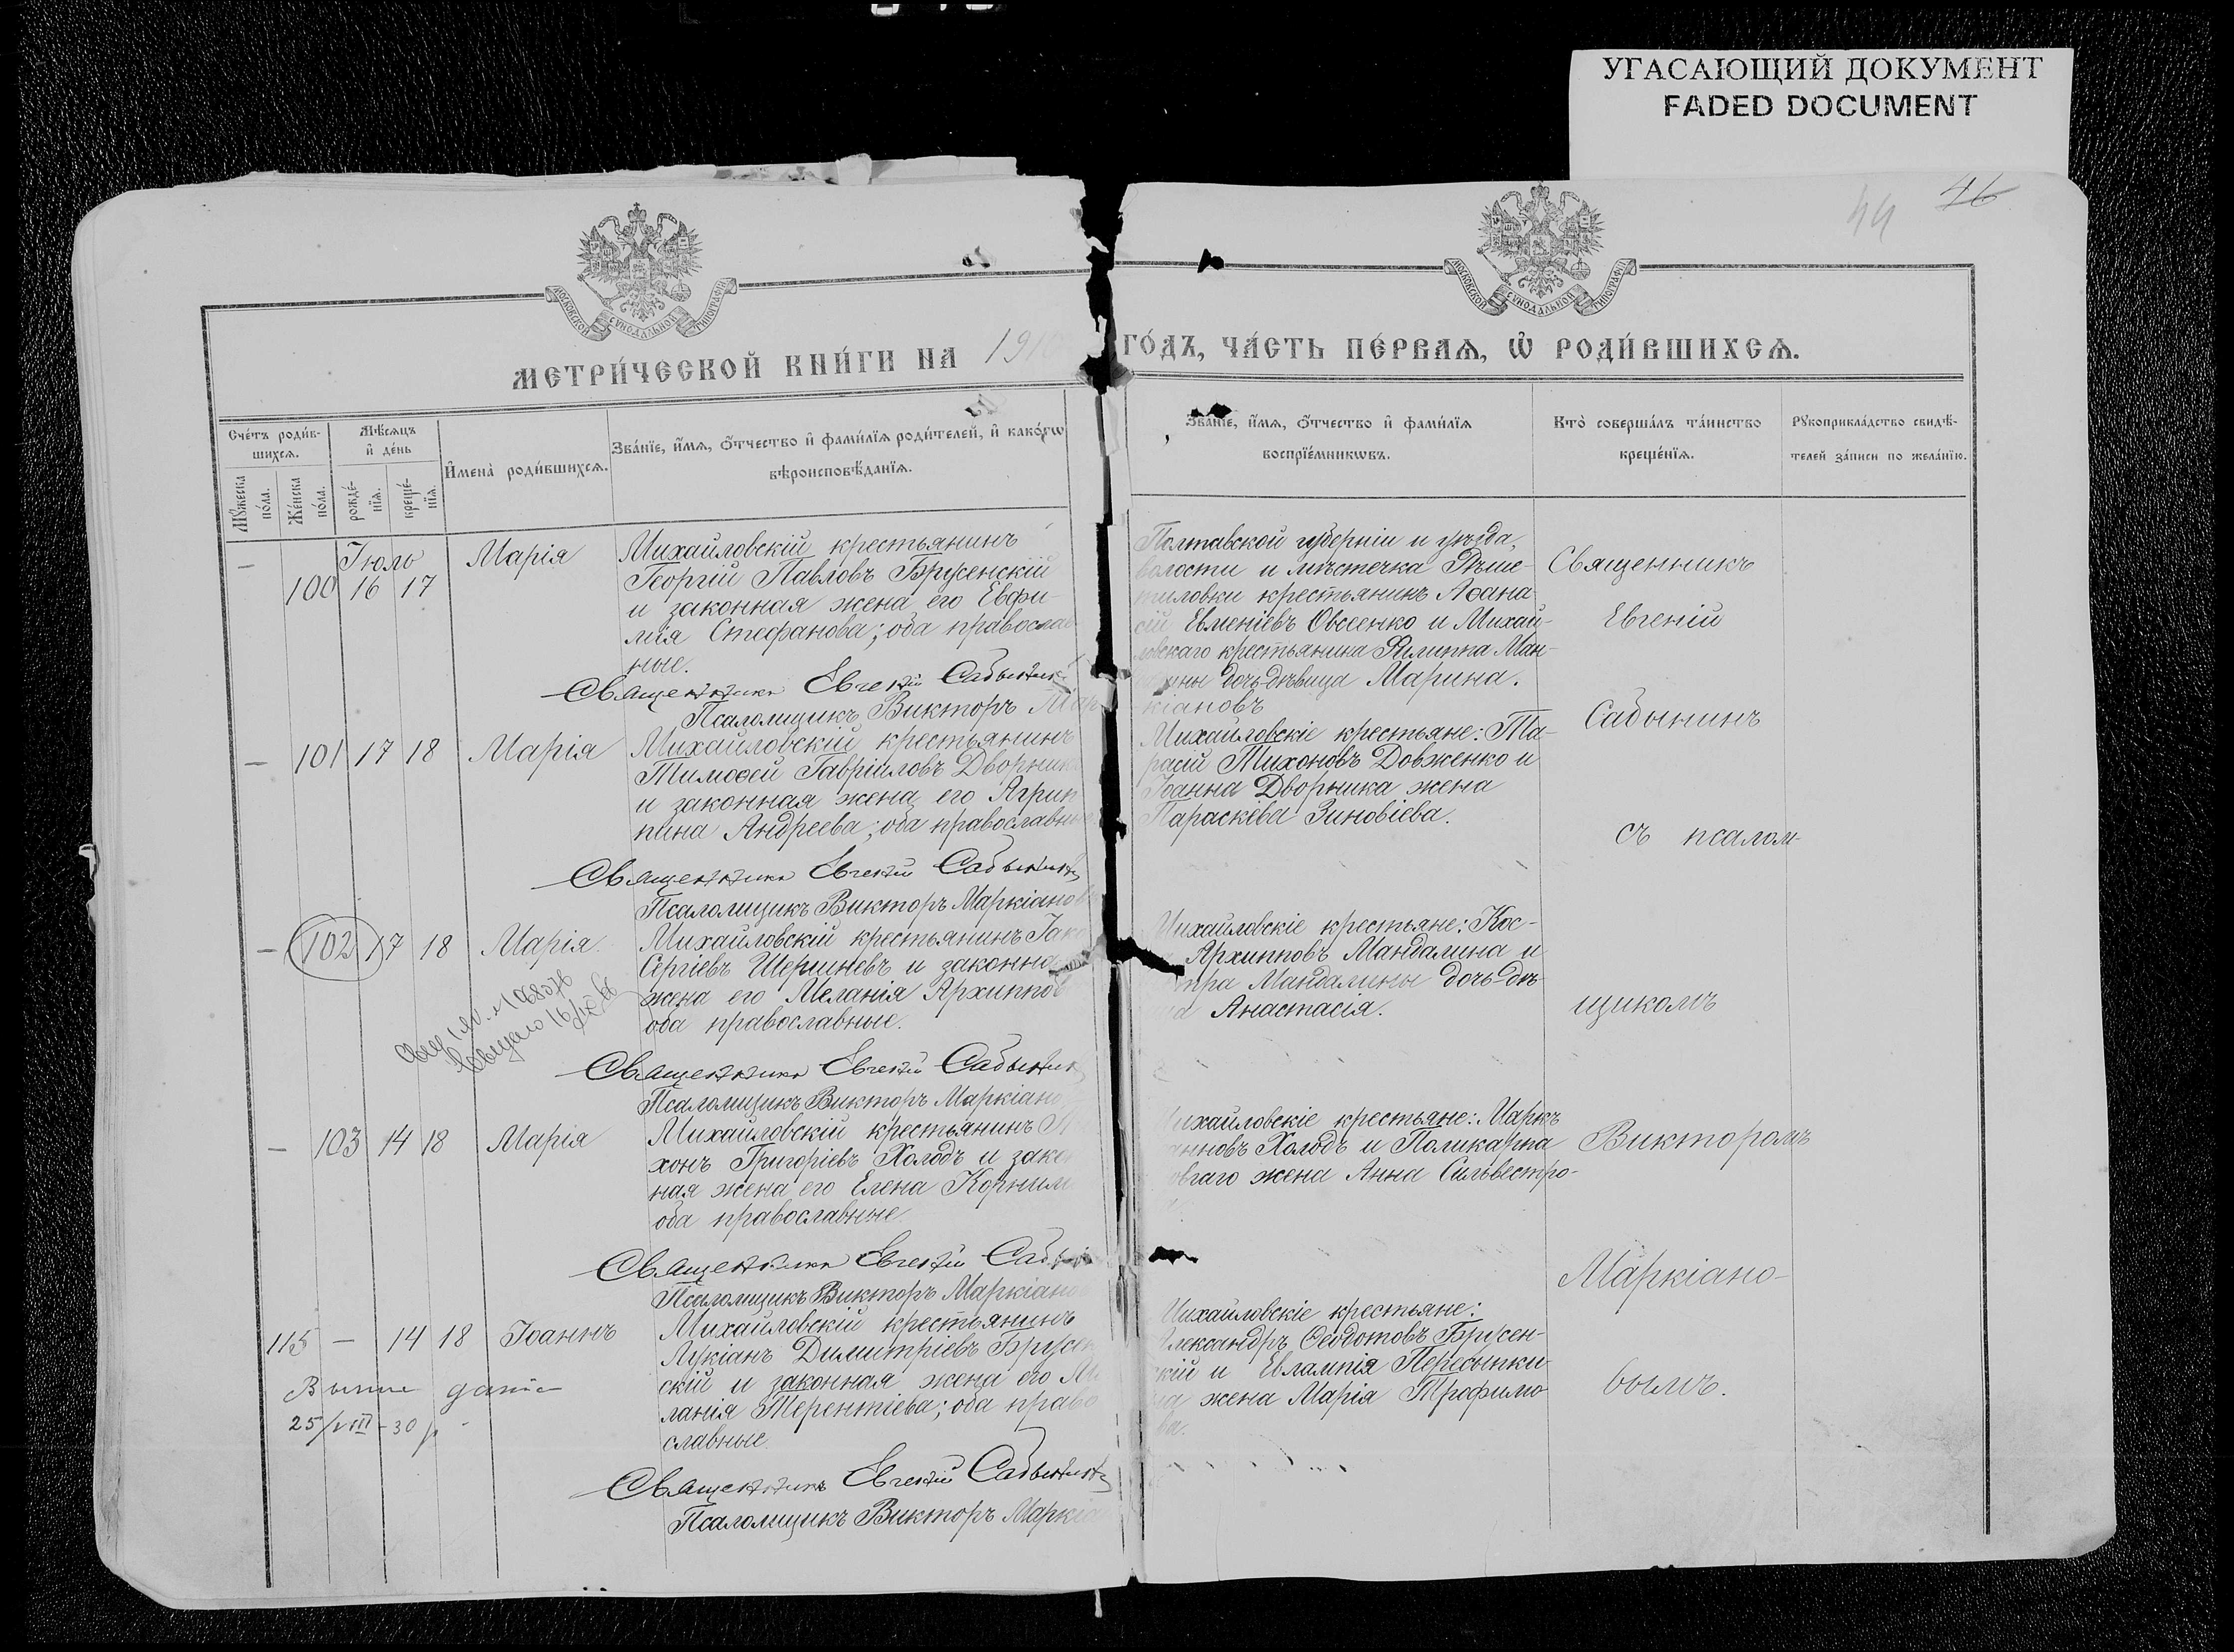 УГАСАЮЩИЙ ДОКУМЕНТ
FADED DOCUMENT
44
46
МОСКОВСКОЙ СѴНОДАЛЬНОЙ ТИПОГРАФІИ
МОСКОВСКОЙ СѴНОДАЛЬНОЙ ТИПОГРАФІИ
МЕТРИ́ЧЕСКОЙ КНИ́ГИ НА 191
ГО́ДЪ, ЧА́СТЬ ПЕ́РВАѦ, Ѽ РОДИ́ВШИХСѦ.
Сче́тъ роди́в-
шихсѧ.
Мꙋ́жеска по́ла.
Же́нска по́ла.
Мѣ́сѧцъ
и҆ де́нь
рожде́-
нїѧ.
креще́-
нїѧ.
И҆мена̀ роди́вшихсѧ.
Зва́нїе, и҆́мѧ, ѻ҆́тчество и҆ фами́лїѧ роди́телей, и҆ како́гѡ
вѣроисповѣ́данїѧ.
Зва́нїе, и҆́мѧ, ѻ҆́тчество и҆ фами́лїѧ
воспрїе́мникѡвъ.
Кто̀ соверша́лъ та́инство
креще́нїѧ.
Рꙋкоприкла́дство свидѣ́-
телей за́писи по жела́нїю.
Іюль
— 100 16 17 Марія
Михайловскій крестьянинъ
Георгій Павловъ Брусенскій
и законная жена его Евфи-
мія Стефанова; оба православ
ные.
Священникъ Евгеній Сабынинъ
Псаломщикъ Викторъ Мар
Полтавской губерніи и уѣзда,
волости и мѣстечка Рѣше-
тиловки крестьянинъ Аѳана
сій Евменіевъ Овсеенко и Михай-
ловскаго крестьянина Филиппа Ман-
дочь-дѣвица Марина.
кіановъ
— 101 17 18 Марія
Михайловскій крестьянинъ
Тимоѳей Гавріиловъ Дворник
и законная жена его Агрип
пина Андреева; оба православны
Священникъ Евгеній Сабынинъ
Псаломщикъ Викторъ Маркіановъ
Михайловскіе крестьяне: Та-
расій Тихоновъ Довженко и
Іоанна Дворника жена
Параскева Зиновіева.
— 102 17 18 Марія
Михайловскій крестьянинъ Іак
Сергіевъ Шершневъ и законна
жена его Меланія Архиппов
оба православные.
Священникъ Евгеній Сабынинъ
Псаломщикъ Викторъ Маркіано
Михайловскіе крестьяне: Кос-
Архипповъ Мандалина и
тра Мандалины дочь-дѣ-
Анастасія.
— 103 14 18 Марія
Михайловскій крестьянинъ
хонъ Григоріевъ Холодъ и закон
ная жена его Елена Корнил
оба православные.
Священникъ Евгеній Сабын
Псаломщикъ Викторъ Маркіано
ихайловскіе крестьяне: Маркъ
анновъ Холодъ и Поликарпа
жена Анна Сильвестро-
115 — 14 18 Іоаннъ
25/VIII-30
Михайловскій крестьянинъ
Лукіанъ Димитріевъ Брусен
скій и законная жена его Ме
ланія Терентіева; оба право
славные.
Священникъ Евгеній Сабынинъ
Псаломщикъ Викторъ Маркіа
Михайловскіе крестьяне:
Александръ Ѳеодотовъ Брусен-
скій и Евлампія Пересыпки
на жена Марія Трофимо
ва.
Священникъ
Евгеній
Сабынинъ
съ псалом-
щикомъ
Викторомъ
Маркіано-
вымъ.